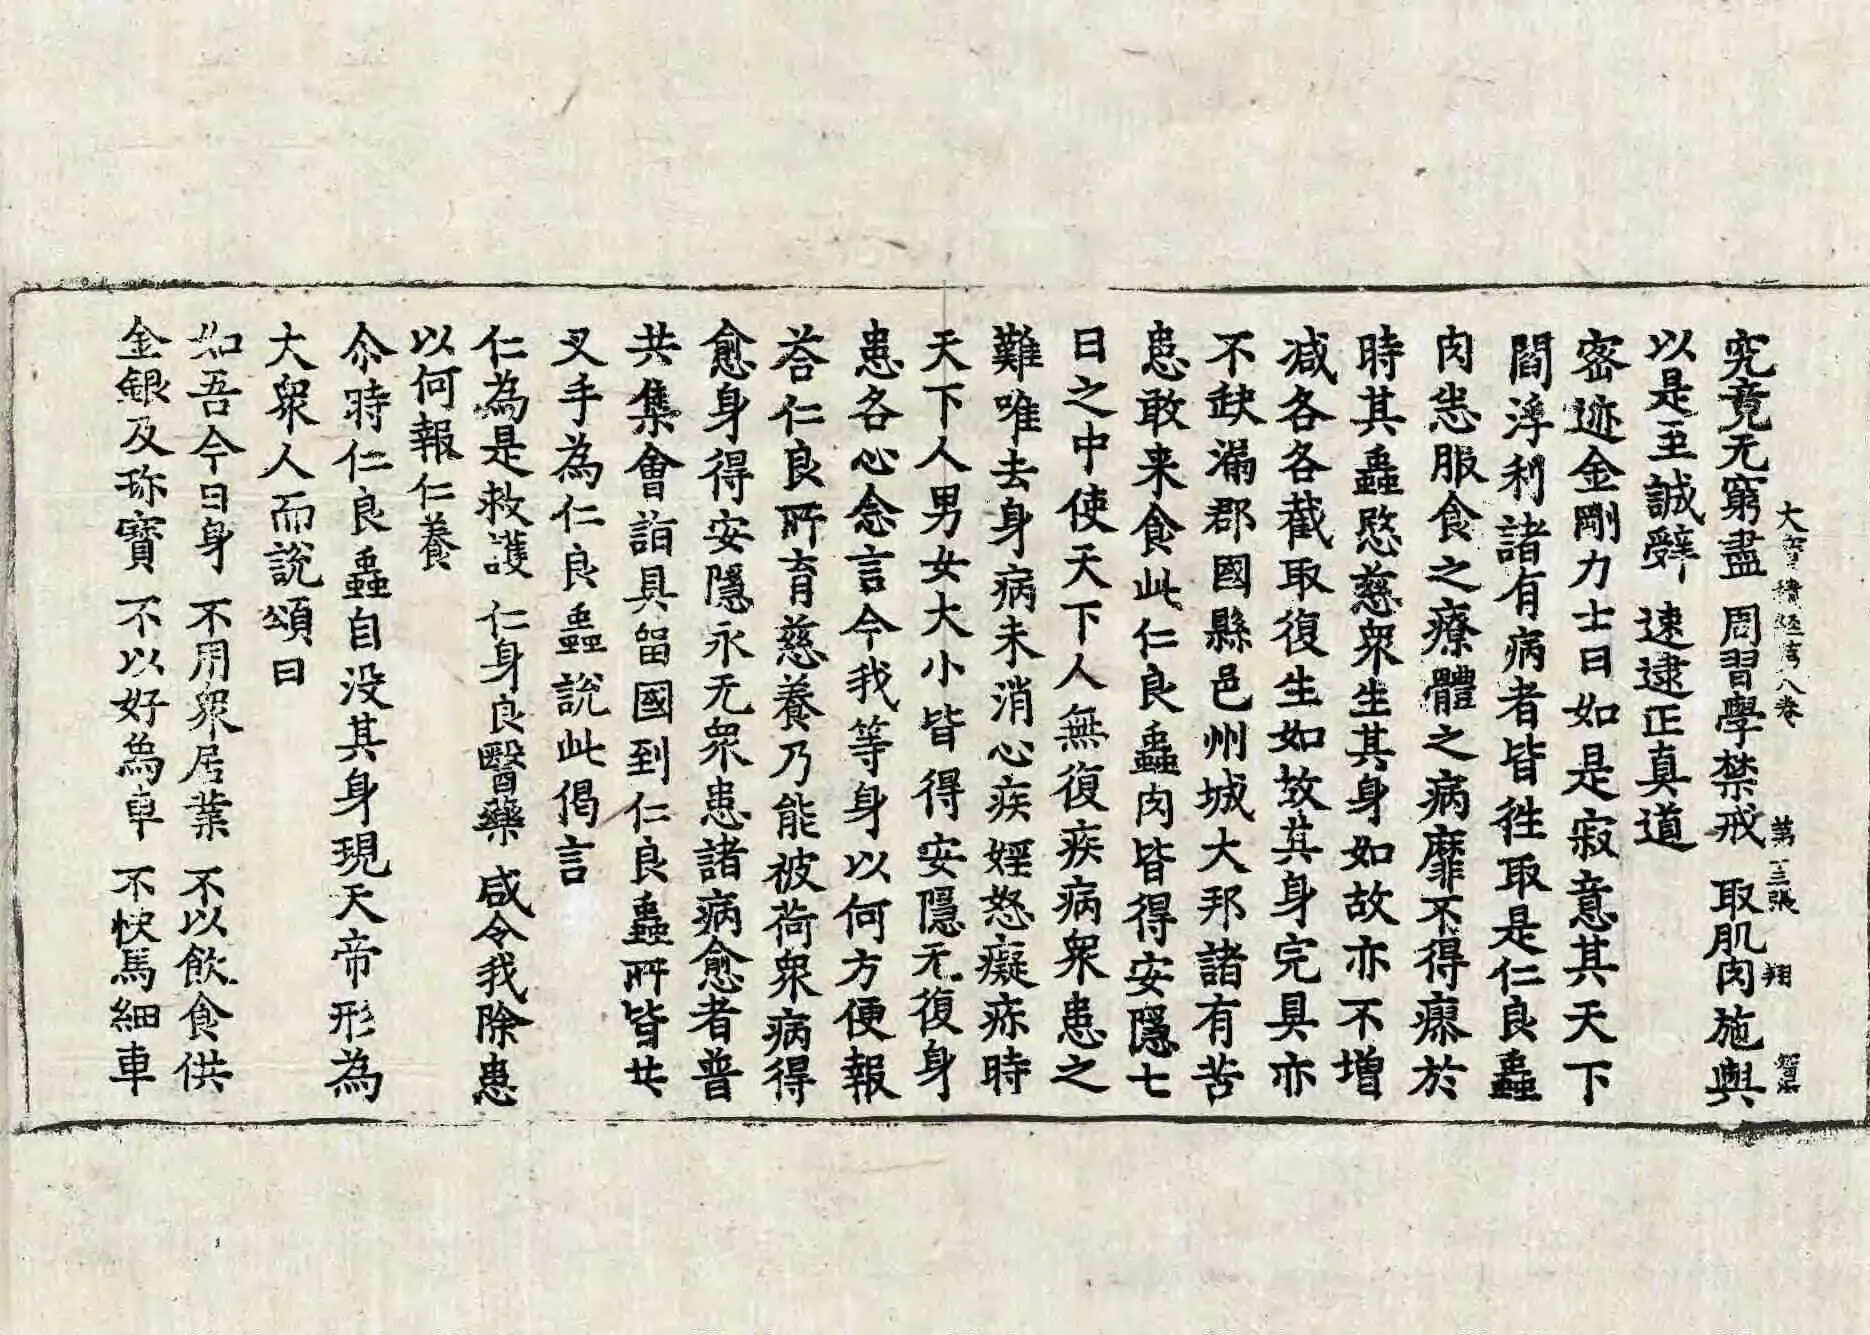 大寶積經第八卷 第三張 翔
究竟无窮盡 周習學禁戒 取肌肉施與
以是至誠辭 速逮正真道
密迹金剛力士曰如是寂意其天下
閻浮利諸有病者皆徃取是仁良蟲
肉㤅服食之療體之病靡不得瘳於
時其蟲愍慈衆生其身如故亦不增
减各各截取復生如故其身完具亦
不缺漏郡國縣邑州城大邦諸有苦
患敢来食此仁良蟲肉皆得安隱七
日之中使天下人無復疾病衆患之
難唯去身病未消心疾婬怒癡疢時
天下人男女大小皆得安隱无復身
患各心念言今我等身以何方便報
荅仁良所育慈養乃能被荷衆病得
愈身得安隱永无衆患諸病愈者普
共集會詣具留國到仁良蟲所皆共
叉手為仁良蟲說此偈言
仁為是救護 仁身良醫藥 咸令我除患
以何報仁養
尒時仁良蟲自没其身現天帝形為
大衆人而說頌曰
如吾今日身 不用衆居業 不以飲食供
金銀及珎寳 不以好爲車 不快馬細車